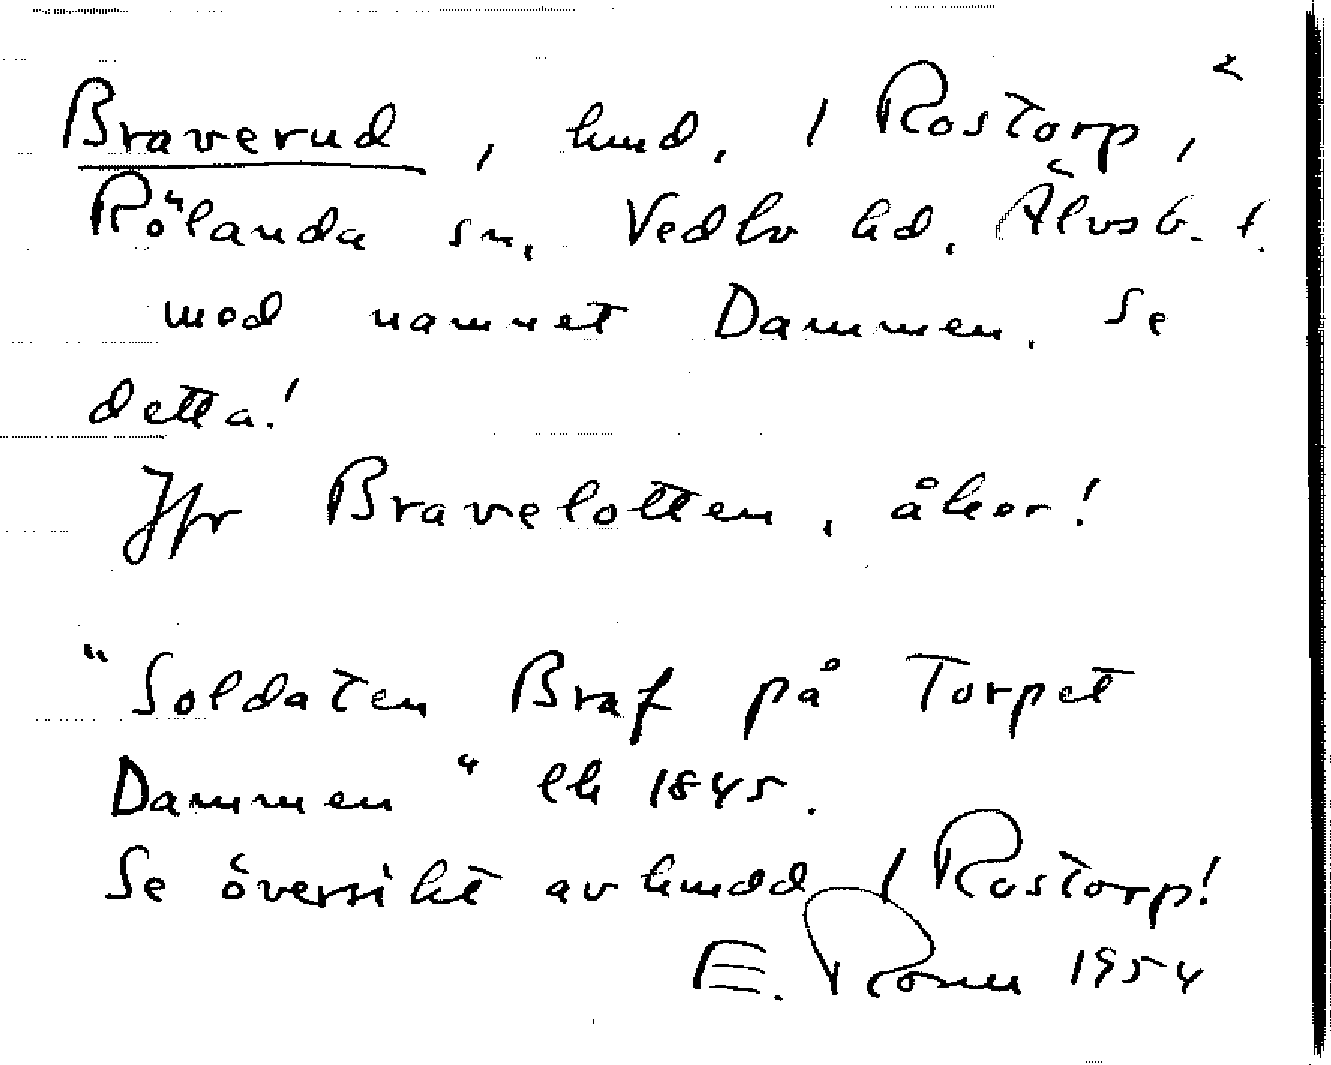 Braverud, hmd. / Rostorp,
Rölanda sn, Vedbo hd. Älvsb. l.
med namnet Dammen. Se
detta!
Jfr Bravelotten, åker!
"Soldaten Braf på Torpet
Dammen" lh 1845.
Se översikt av hmdd / Rostorp!
E. Rosen 1954